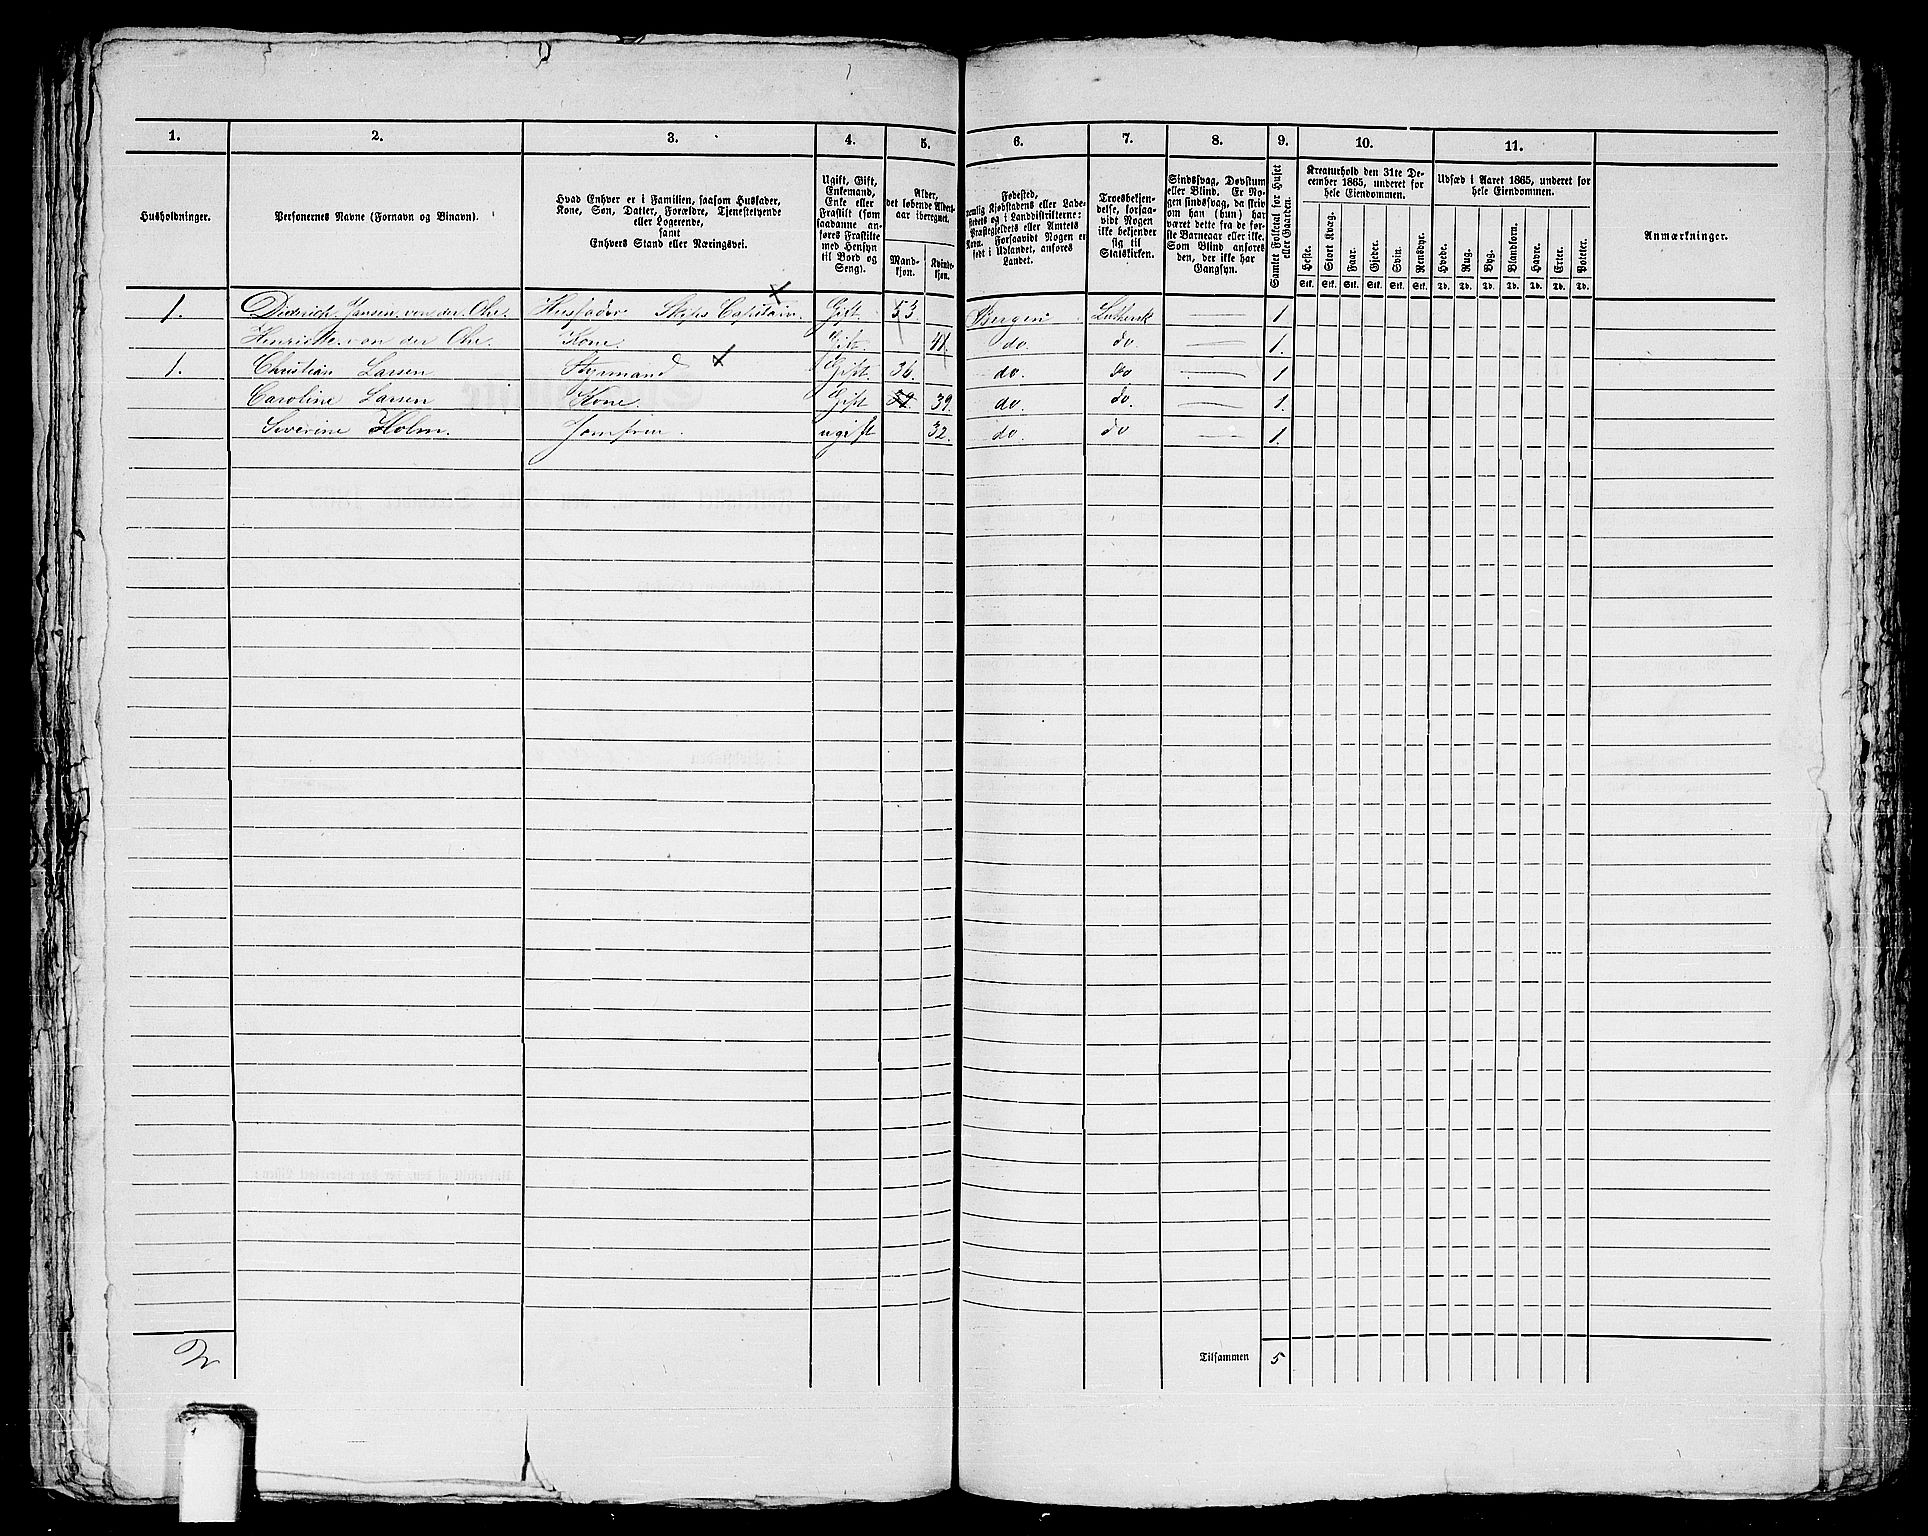 1. 2. 3. 4. 5. 6. 7. 8. 9. 10. 11.
Husholdninger.
Personernes Navne (Fornavn og Binavn).
Hvad Enhver er i Familien, saasom Husfader,
Kone, Søn, Datter, Forældre, Tjenestetyende
eller Logerende,
samt
Enhvers Stand eller Næringsvei.
Ugift, Gift,
Enkemand,
Enke eller
Fraskilt (som
saadanne an-
føres Fraskilte
med Hensyn
til Bord og
Seng).
Alder,
det løbende Alders-
aar iberegnet.
Mand-
kjøn.
Kvinde-
kjøn.
Fødested,
nemlig Kjøbstadens eller Lade-
stedets og i Landdistrikterne:
Præstegjeldets eller Amtets
Navn. Forsaavidt Nogen er
født i Udlandet, anføres
Landet.
Troesbekjen-
delse, forsaa-
vidt Nogen
ikke bekjender
sig til
Statskirken.
Sindssvag, Døvstum
eller Blind. Er No-
gen sindssvag, da skriv
om han (hun) har
været dette fra de før-
ste Barneaar eller ikke.
Som Blind anføres
den, der ikke har
Gangsyn.
Samlet Folketal for Huset
eller Gaarden.
Kreaturhold den 31te De-
cember 1865, underet for
hele Eiendommen.
Heste. Stort Kvæg. Faar. Gjeder. Svin. Rensdyr.
Stk. Stk. Stk. Stk. Stk. Stk.
Udsæd i Aaret 1865, underet for
hele Eiendommen.
Hvede. Rug. Byg. Blandkorn. Havre. Erter. Poteter.
Td. Td. Td. Td. Td. Td. Td.
Anmærkninger.
1. Diderich Jansen von der Ohe. Husfader Skips Capitain. Gift 53 Bergen Luthersk — 1.
Henriette von der Ohe. Kone. Gift 41 do. do. — 1.
1. Christian Larsen Styrmand Gift. 36. do. do — 1
Caroline Larsen Kone. Gift 39. do. do. — 1.
Severine Holm. Jomfru. ugift 32. do. do — 1.
Tilsammen 5
2